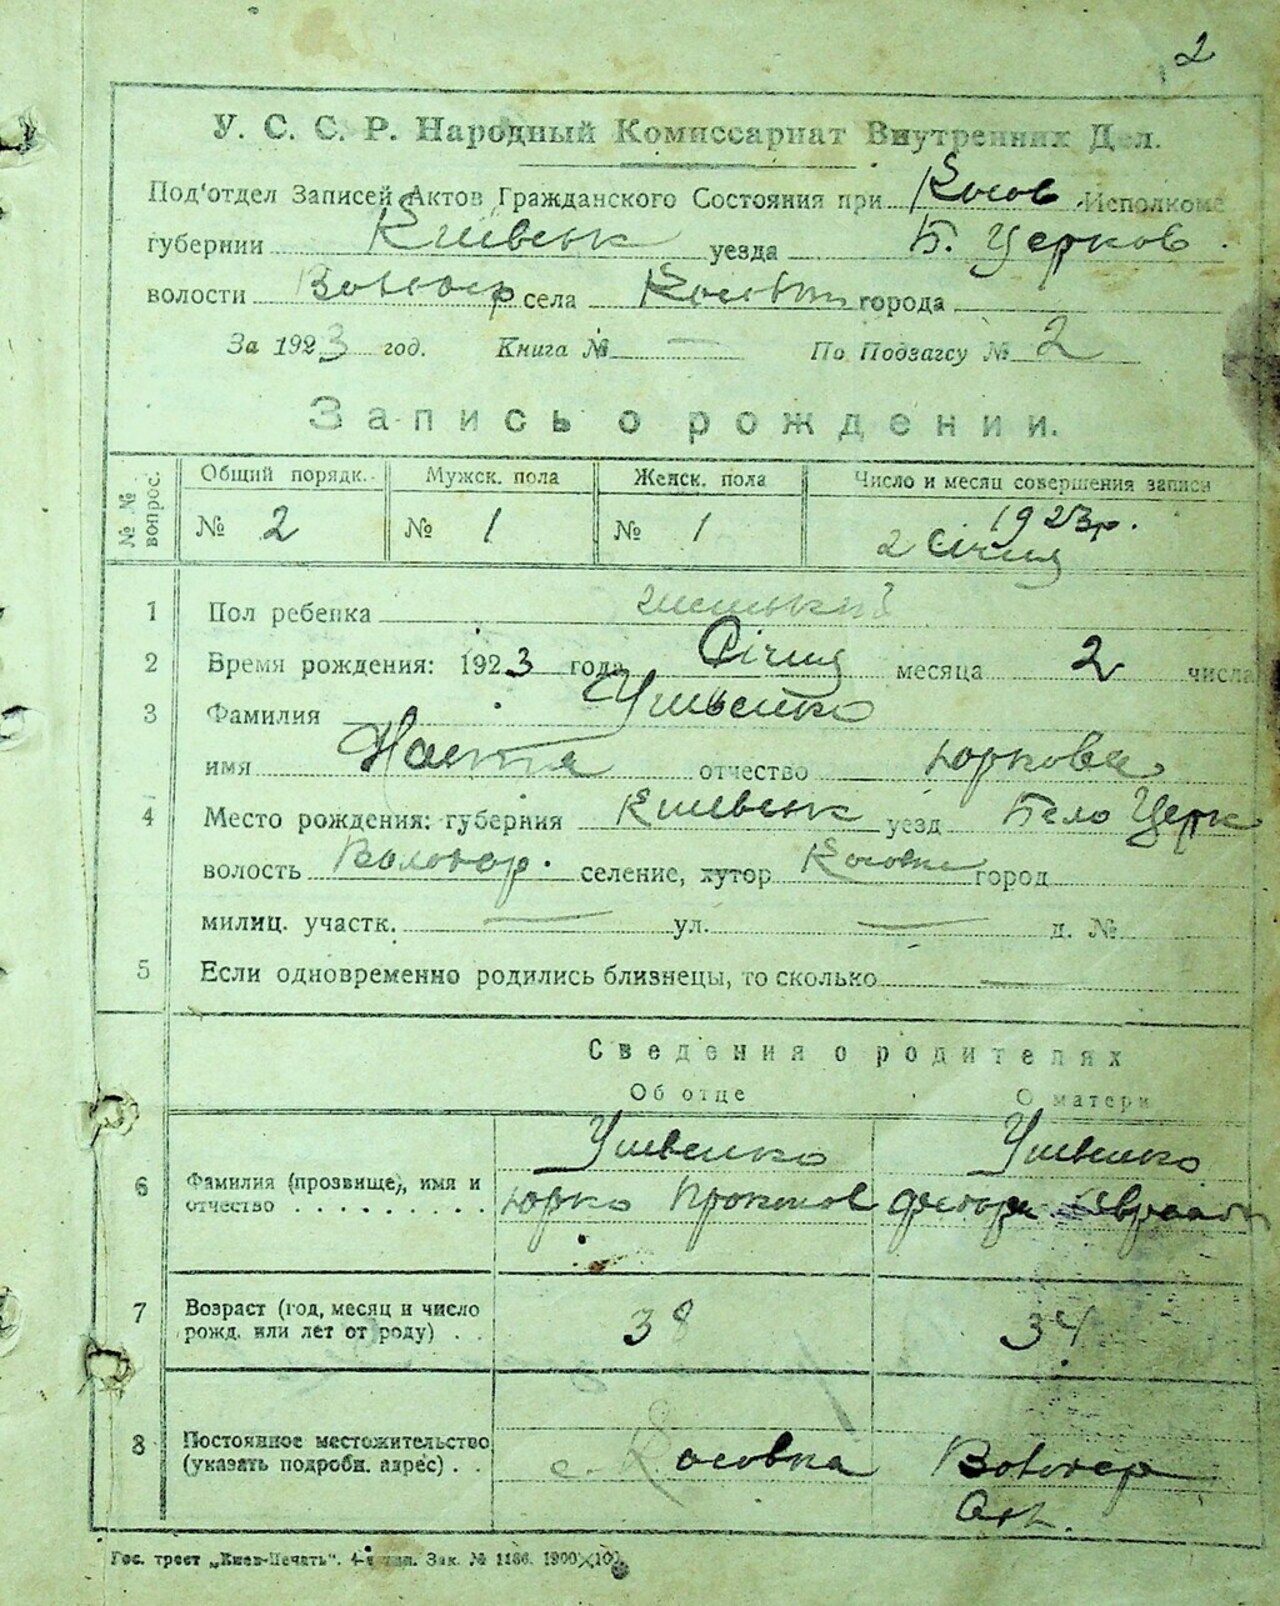 2
У. С. С. Р. Народный Комиссариат Внутренних Дел.
Под'отдел Записей Актов Гражданского Состояния при Косов Исполкоме
губернии Київськ уезда Б. Церков.
волости села города
За 1923 год. Книга № — По Подзагсу № 2
Запись о рождении.
№ № вопрос. Общий порядк. Мужск. пола Женск. пола Число и месяц совершения записи
№ 2 № 1 № 1 1923 р. 2 Січня
1 Пол ребенка
2 Время рождения: 1923 года Січня месяца 2 числа
3 Фамилия
имя Настя отчество Юркова
4 Место рождения: губерния Київськ уезд Бело Церк
волость Волотар. селение, хутор Косовка город
милиц. участк. — ул. — д. №
5 Если одновременно родились близнецы, то сколько —
Сведения о родителях
Об отце О матери
6 Фамилия (прозвище), имя и
отчество . . . . . . . . . Юрко
7 Возраст (год, месяц и число
рожд. или лет от роду) . . 38 34
8 Постоянное местожительство
(указать подробн. адрес) . . с. Косовка
Гос. трест „Киев-Печать“. Зак. № 1186.